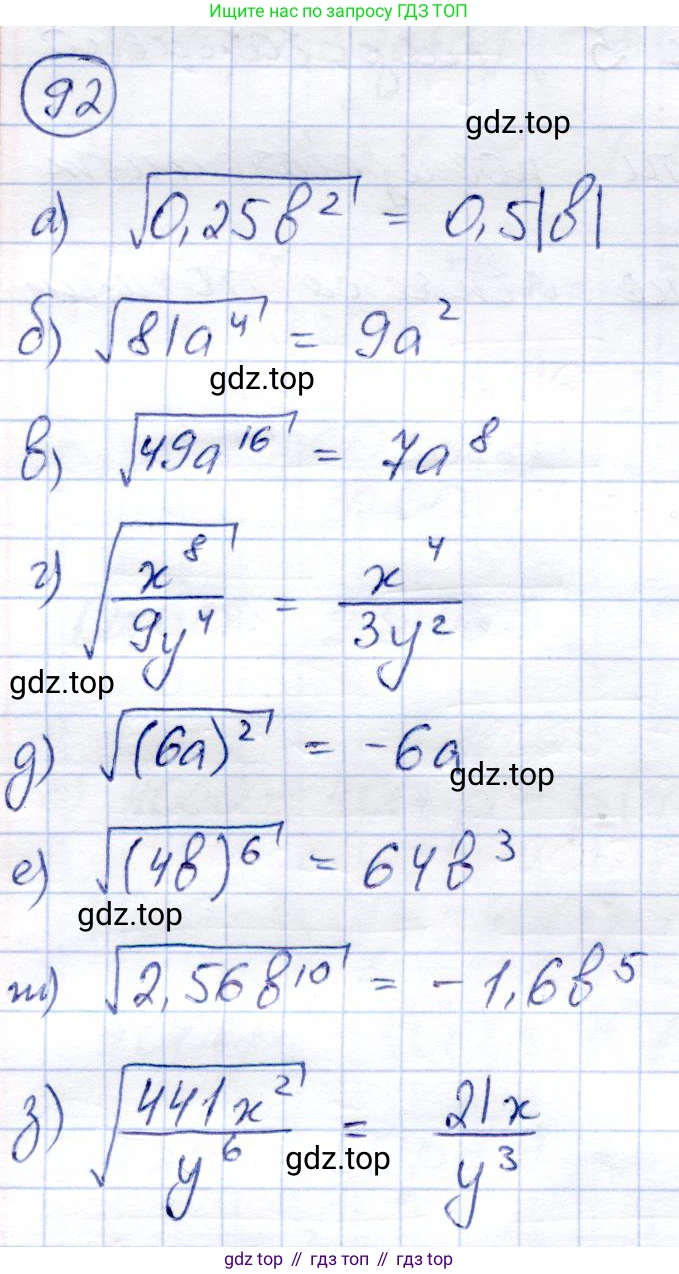 Ищите нас по запросу ГДЗ ТОП
92
gdz.top
а) √(0,25в²) = 0,5|в|
б) √(81a⁴) = 9a²
gdz.top
в) √(49a¹⁶) = 7a⁸
г) √(x⁸/9y⁴) = x⁴/3y²
gdz.top
д) √((6a)²) = -6a
gdz.top
е) √((4в)⁶) = 64в³
gdz.top
ж) √(2,56в¹⁰) = -1,6в⁵
з) √(441x²/y⁶) = 21x/y³
gdz.top
gdz top // гдз топ // гдз top